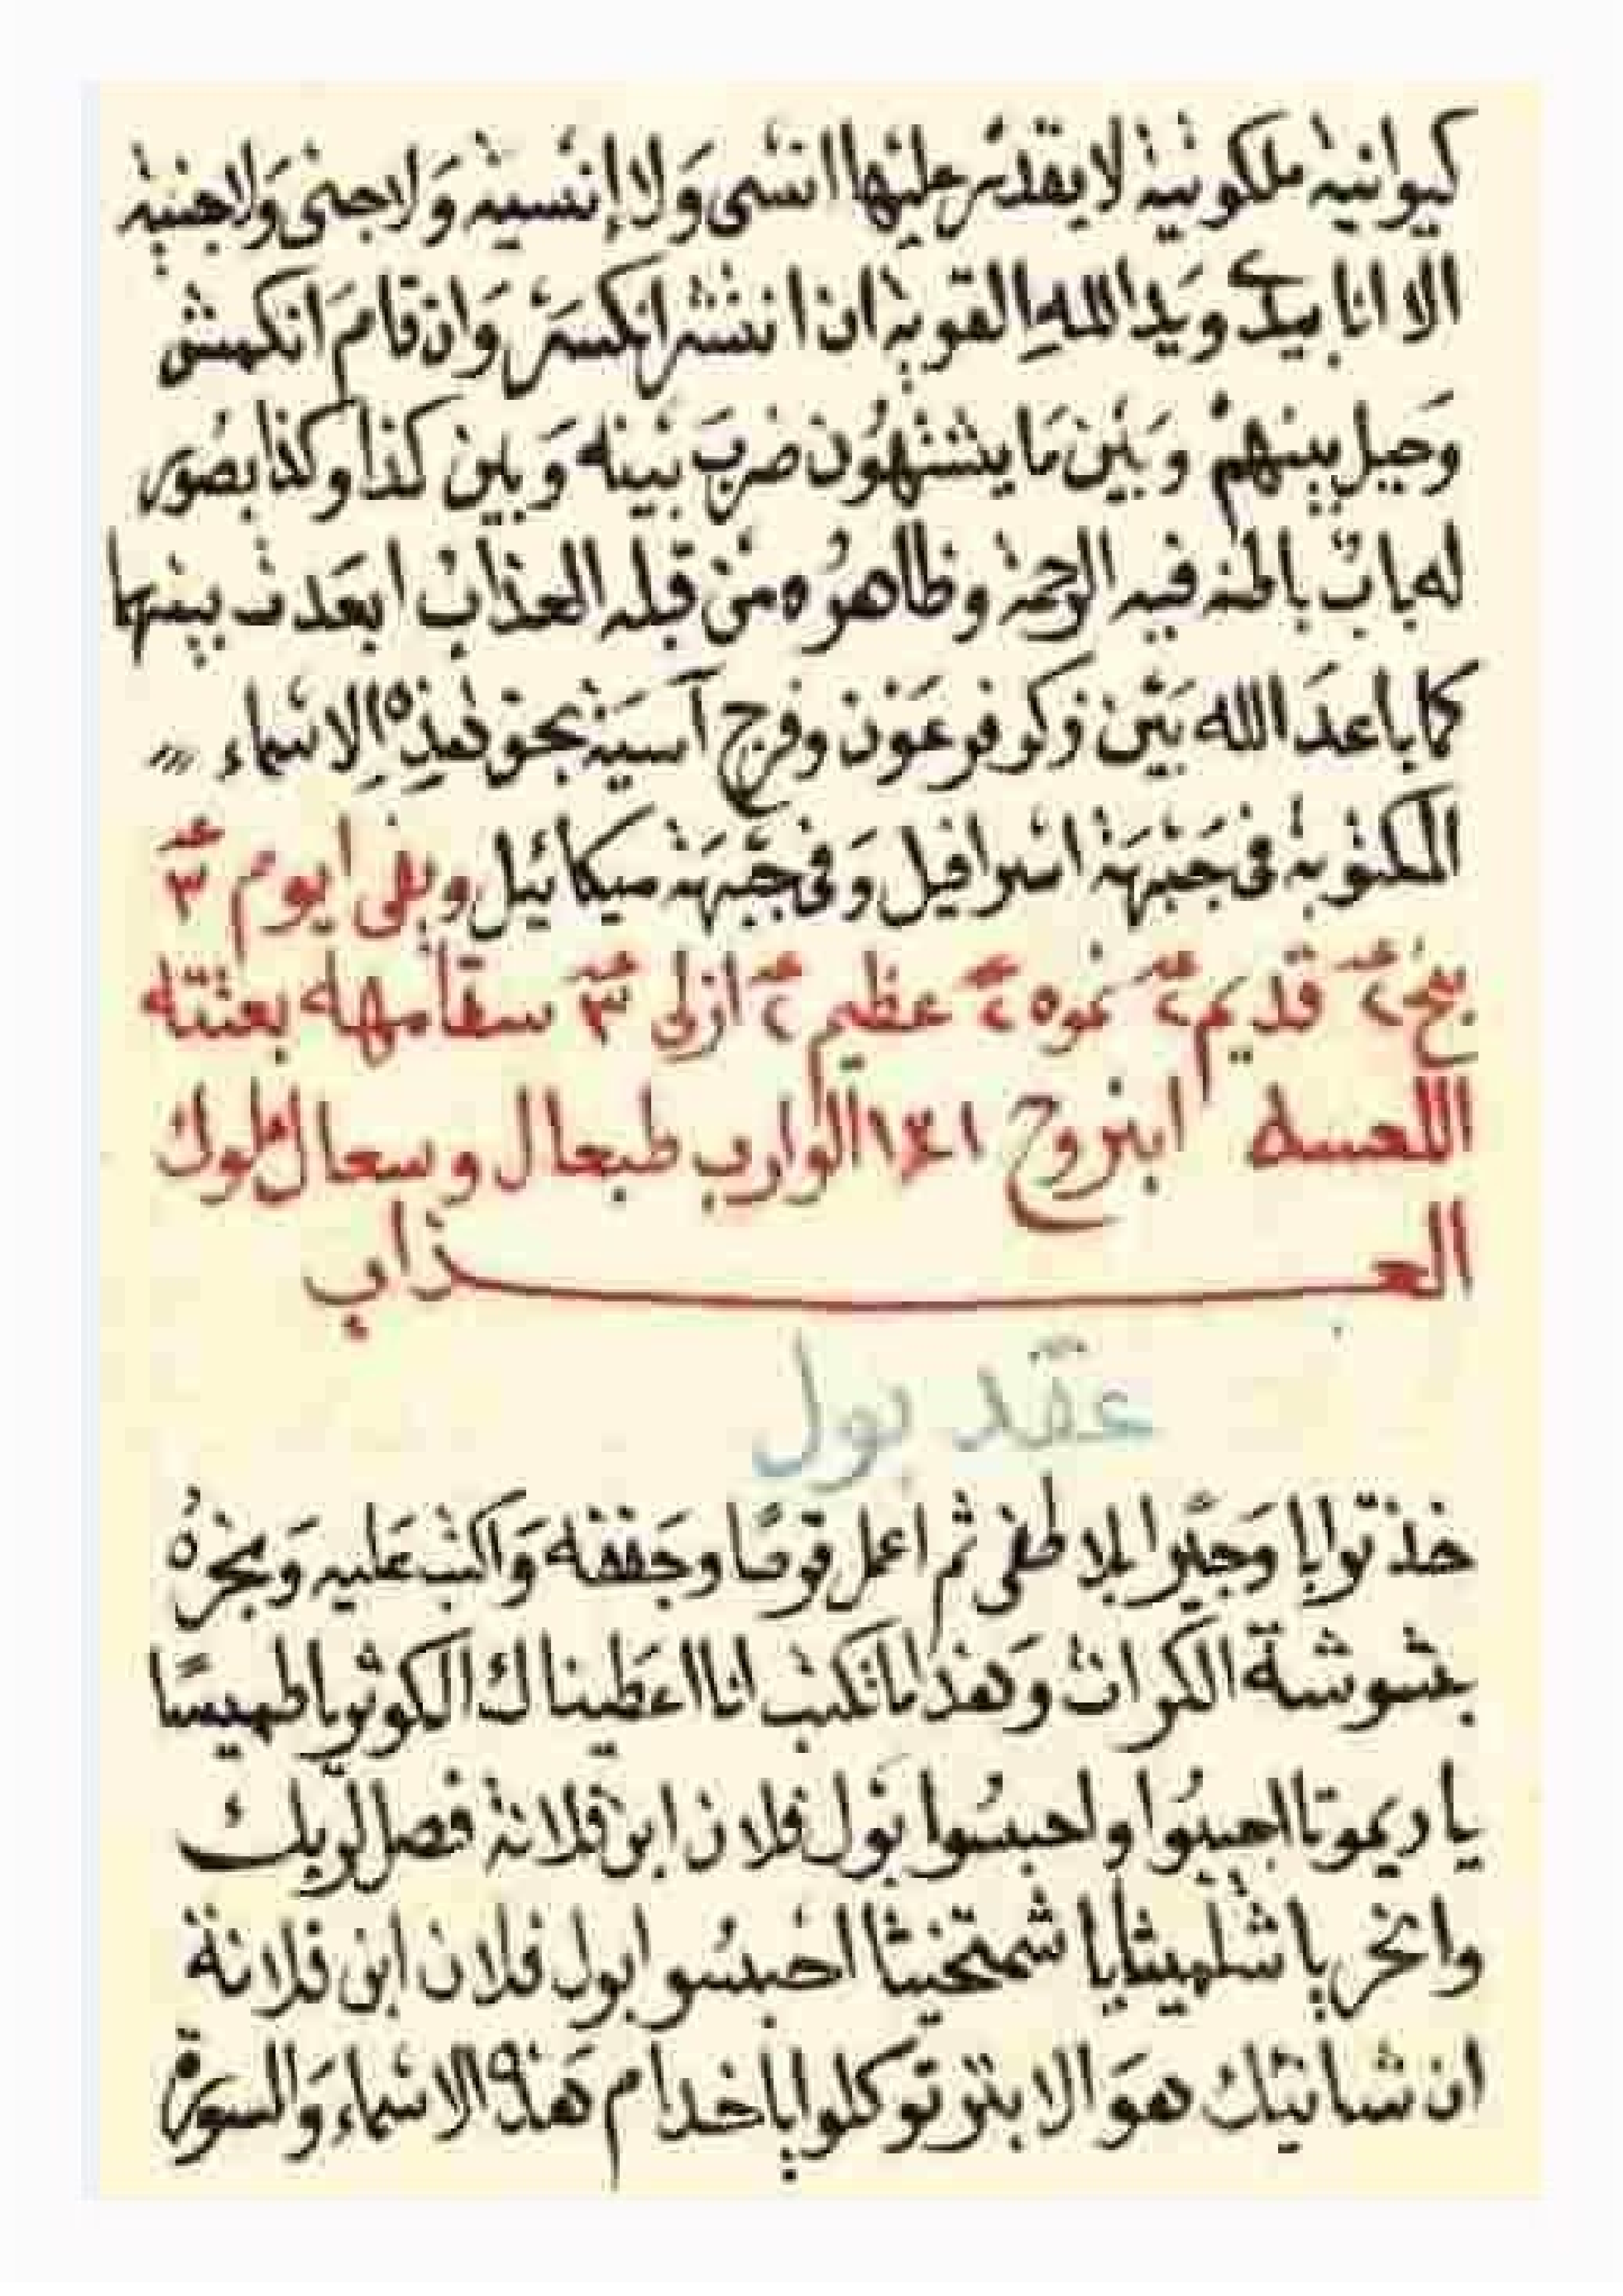 كيوانيه ملكوتية لا يقدر عليها انسى وَلا إنسية وَلا جنى وَلا جنيه
الا انا بيدى ويد اللهِ القوية ان انتشر انكسرَ وَان قامَ انكمش
وَحيل بينهمْ وَبَيْن مَا يشتهُون ضربَ بينه وَبين كذا وكذا بصُور
له بابٌ باطنه فيه الرحمة وظاهرُه منْ قبله العذابْ ابعَدت بينها
كما باعدَ الله بَيْن ذكر فرعَوْن وفرج آسيَة بحق هٰذِه الاسْماء
المكتوبة فى جَبْهَة اسْرافيل وَفى جَبْهَة ميكائيل وبقى ايوم ٣
بخ ٢ قديم ٢ نموه ٢ عظيم ٢ ازلى ٣ سقامهه بعثته
ابتروح الوارب طبعال وسعال ملوك
العذاب
عقد بول
خذ ترابا وَجيْرا بلا طفى ثم اعمل قرصًا وجَففه وَاكتب عليه وَبخرْهُ
بشوشة الكراث وَهذا ما تكتب انا اعطيناك الكوثر يا طهيسًا
يا ريموتا اجيبُوا واحبسُوا بَول فلان ابن فلانة فصل لربك
وانحر يا شلهيثا يا شمتخيثا احبسُوا بول فلان ابن فلانة
ان شانئك هوَ الابتر توكلوا يا خدام هَذه الاسْماء وَالسورة